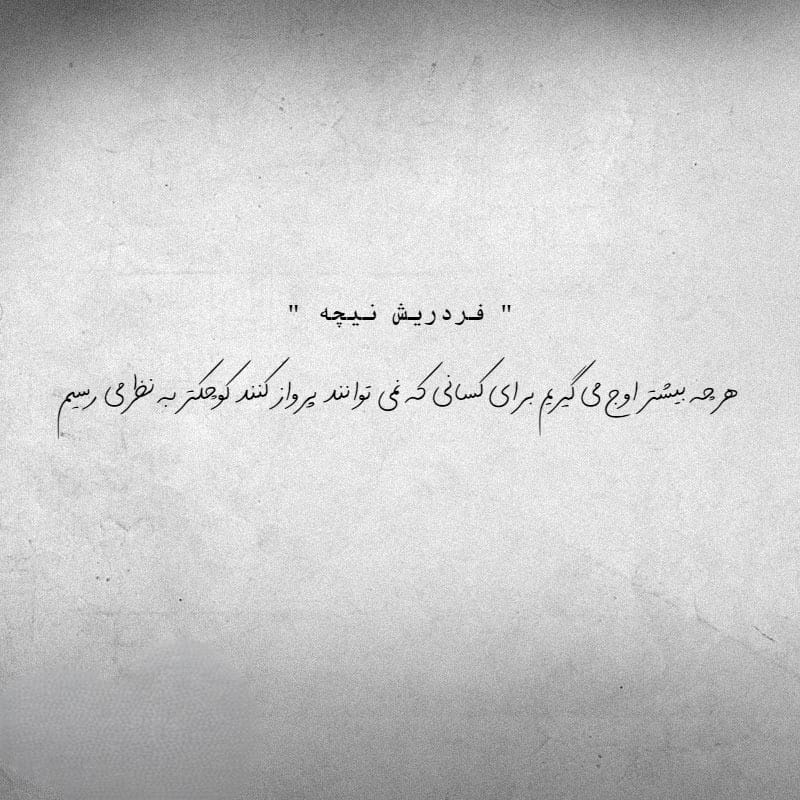 " فردریش نیچه "
هرچه بیشتر اوج می گیریم برای کسانی که نمی توانند پرواز کنند کوچکتر به نظر می رسیم